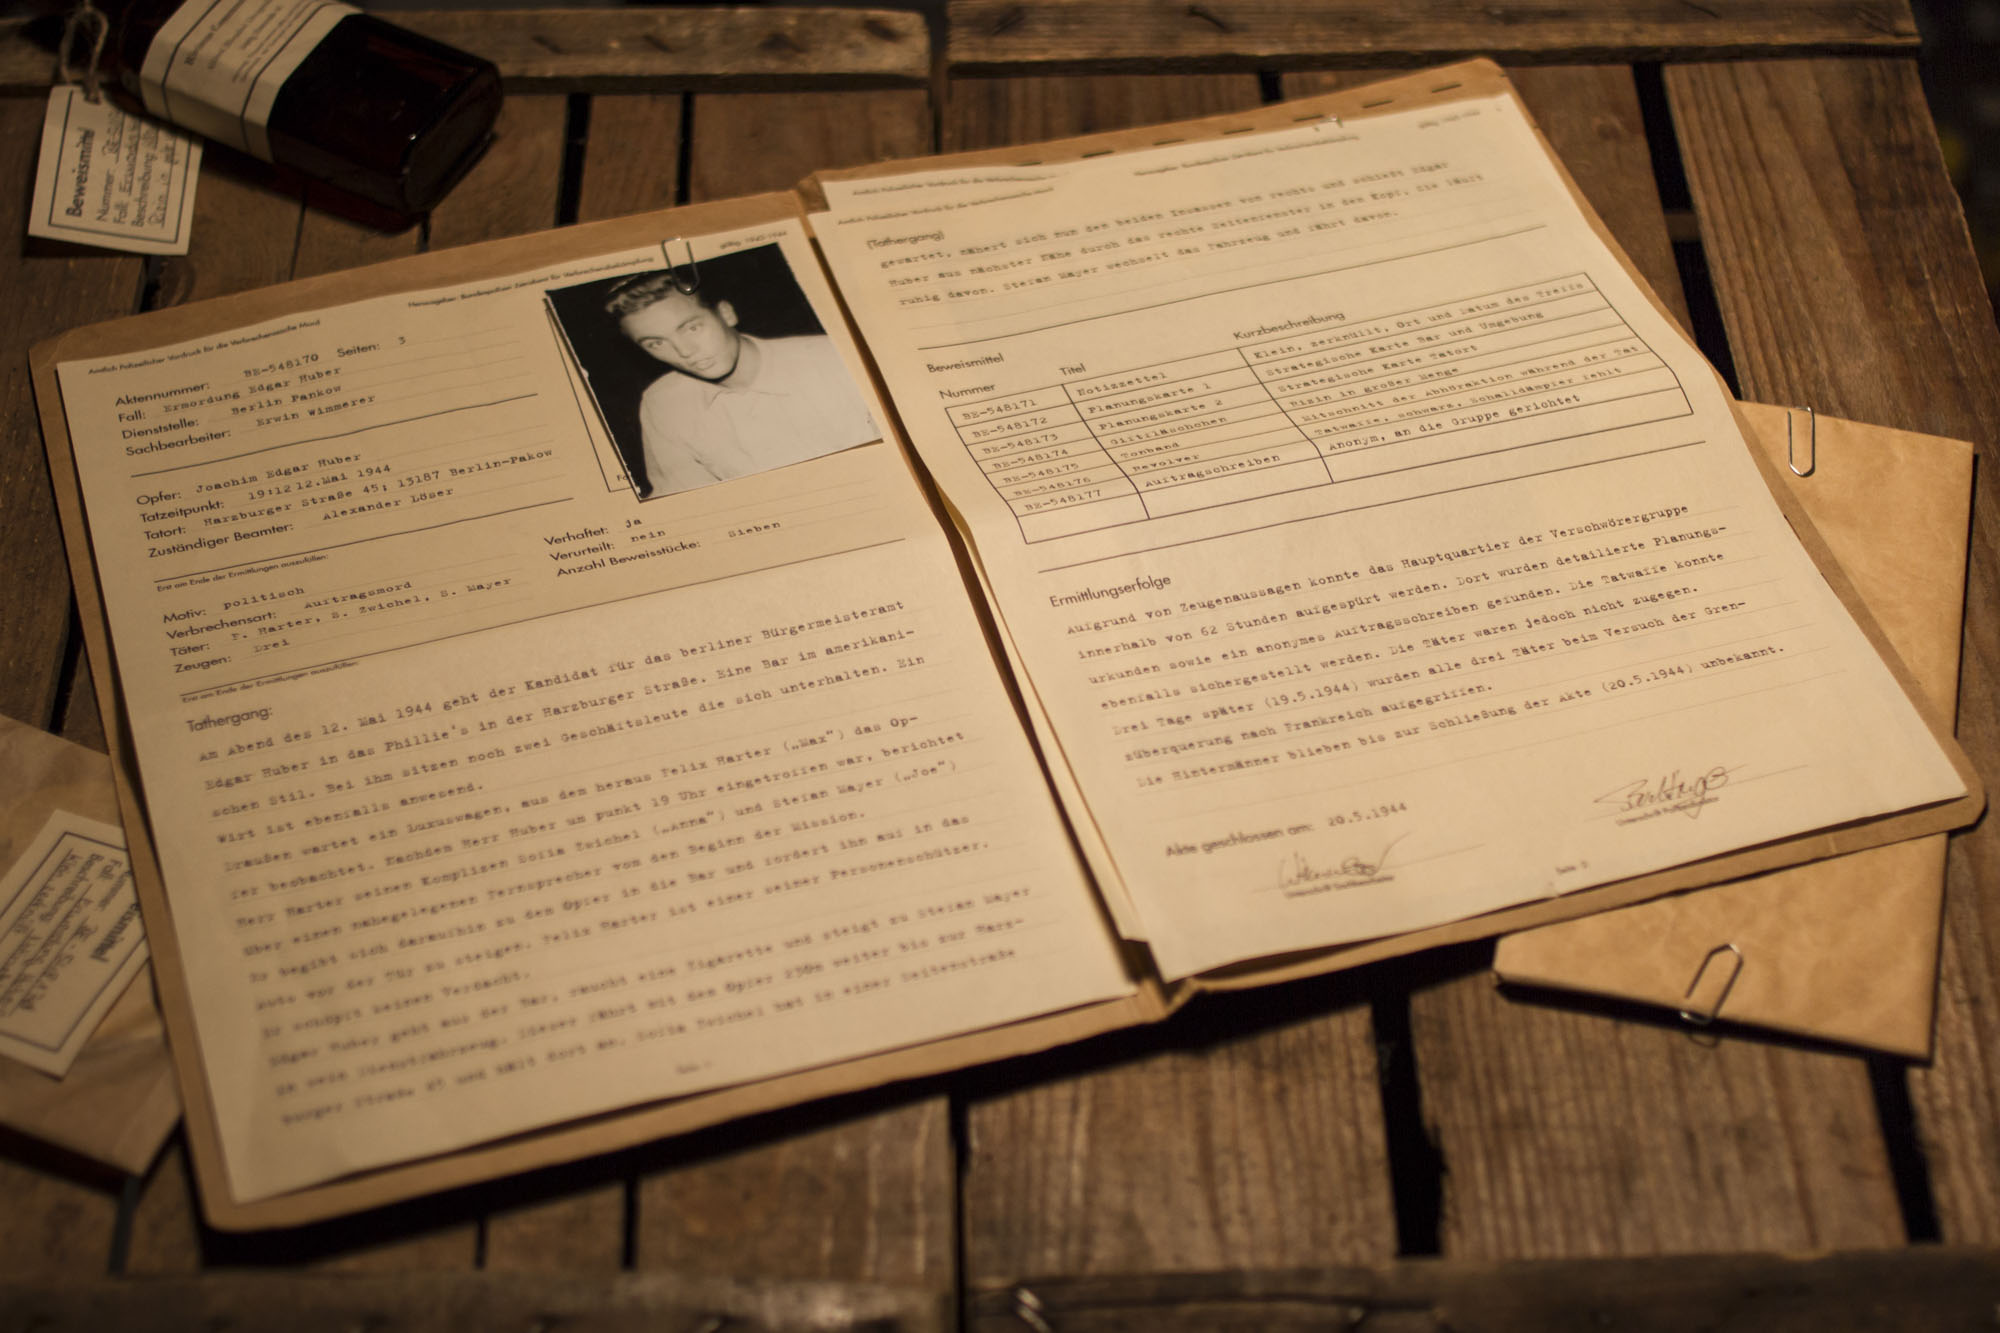 Beweismittel
Nummer: BE-548
Fall: Ermordung
Beschreibung:
Rizin in
Amtlich Polizeilicher Vordruck für die Verbrechenssache Mord
Herausgeber: Bundespolizei Zentralamt für Verbrechensbekämpfung
gültig 1943-1944
Aktennummer: BE-548170 Seiten: 3
Fall: Ermordung Edgar Huber
Dienststelle: Berlin Pankow
Sachbearbeiter: Erwin Wimmerer
Opfer: Joachim Edgar Huber
Tatzeitpunkt: 19:12 12.Mai 1944
Tatort: Harzburger Straße 45; 13187 Berlin-Pakow
Zuständiger Beamter: Alexander Löser
Fo
Erst am Ende der Ermittlungen auszufüllen:
Verhaftet: ja
Verurteilt: nein
Anzahl Beweisstücke: Sieben
Motiv: politisch
Verbrechensart: Auftragsmord
Täter: F. Harter, S. Zwichel, S. Mayer
Zeugen: Drei
Erst am Ende der Ermittlungen auszufüllen:
Tathergang:
Am Abend des 12. Mai 1944 geht der Kandidat für das berliner Bürgermeisteramt
Edgar Huber in das Phillie's in der Harzburger Straße. Eine Bar im amerikani-
schen Stil. Bei ihm sitzen noch zwei Geschäftsleute die sich unterhalten. Ein
Wirt ist ebenfalls anwesend.
Draußen wartet ein Luxuswagen, aus dem heraus Felix Harter („Max“) das Op-
fer beobachtet. Nachdem Herr Huber um punkt 19 Uhr eingetroffen war, berichtet
Herr Harter seinen Komplizen Sofia Zwichel („Anna“) und Stefan Mayer („Joe“)
über einen nahegelegenen Fernsprecher vom den Beginn der Mission.
Er begibt sich daraufhin zu dem Opfer in die Bar und fordert ihn auf in das
Auto vor der Tür zu steigen. Felix Harter ist einer seiner Personenschützer.
Er schöpft keinen Verdacht.
Edger Huber geht aus der Bar, raucht eine Zigarette und steigt zu Stefan Mayer
in sein Dienstfahrzeug. Dieser fährt mit dem Opfer 230m weiter bis zur Harz-
burger Straße 45 und hält dort an. Sofia Zwichel hat in einer Seitenstraße
Amtlich Polizeilicher Vordruck für die Verbrechenssache Mord
Herausgeber: Bundespolizei Zentralamt für Verbrechensbekämpfung
gültig 1943-1944
Amtlich Polizeilicher Vordruck für die Verbrechenssache Mord
(Tathergang)
gewartet, nähert sich nun den beiden Insassen von rechts und schießt Edgar
Huber aus nächster Nähe durch das rechte Seitenfenster in den Kopf. Sie läuft
ruhig davon. Stefan Mayer wechselt das Fahrzeug und fährt davon.
Beweismittel
Nummer Titel Kurzbeschreibung
BE-548171 Notizzettel Klein, zerknüllt, Ort und Datum des Treffs
BE-548172 Planungskarte 1 Strategische Karte Bar und Umgebung
BE-548173 Planungskarte 2 Strategische Karte Tatort
BE-548174 Giftfläschchen Rizin in großer Menge
BE-548175 Tonband Mitschnitt der Abhöraktion während der Tat
BE-548176 Revolver Tatwaffe, schwarz, Schalldämpfer fehlt
BE-548177 Auftragschreiben Anonym, an die Gruppe gerichtet
Ermittlungserfolge
Aufgrund von Zeugenaussagen konnte das Hauptquartier der Verschwörergruppe
innerhalb von 62 Stunden aufgespürt werden. Dort wurden detailierte Planungs-
urkunden sowie ein anonymes Auftragsschreiben gefunden. Die Tatwaffe konnte
ebenfalls sichergestellt werden. Die Täter waren jedoch nicht zugegen.
Drei Tage später (19.5.1944) wurden alle drei Täter beim Versuch der Gren-
züberquerung nach Frankreich aufgegriffen.
Die Hintermänner blieben bis zur Schließung der Akte (20.5.1944) unbekannt.
Akte geschlossen am: 20.5.1944
Unterschrift Sachbearbeiter
Seite 2